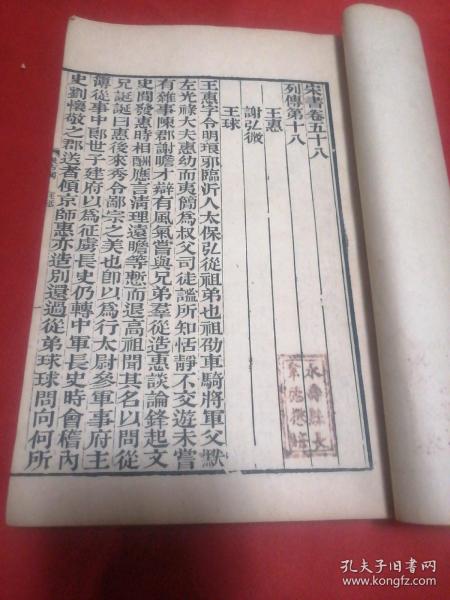 宋書卷五十八
列傳第十八
王惠
謝弘微
王球
王惠字令明琅邪臨沂人太保弘從祖弟也祖劭車騎將軍父默
左光祿大夫惠幼而夷簡爲叔父司徒謐所知恬靜不交遊未嘗
有雜事陳郡謝瞻才辯有風氣嘗與兄弟羣從造惠談論鋒起文
史間發惠時相酬應言清理遠瞻等慙而退高祖聞其名以問從
兄誕誕曰惠後來秀令鄙宗之美也卽以爲行太尉參軍事府主
簿從事中郎世子建府以爲征虜長史仍轉中軍長史時會稽內
史劉懷敬之郡送者傾京師惠亦造別還過從弟球球問向何所
孔夫子旧书网
www.kongfz.com